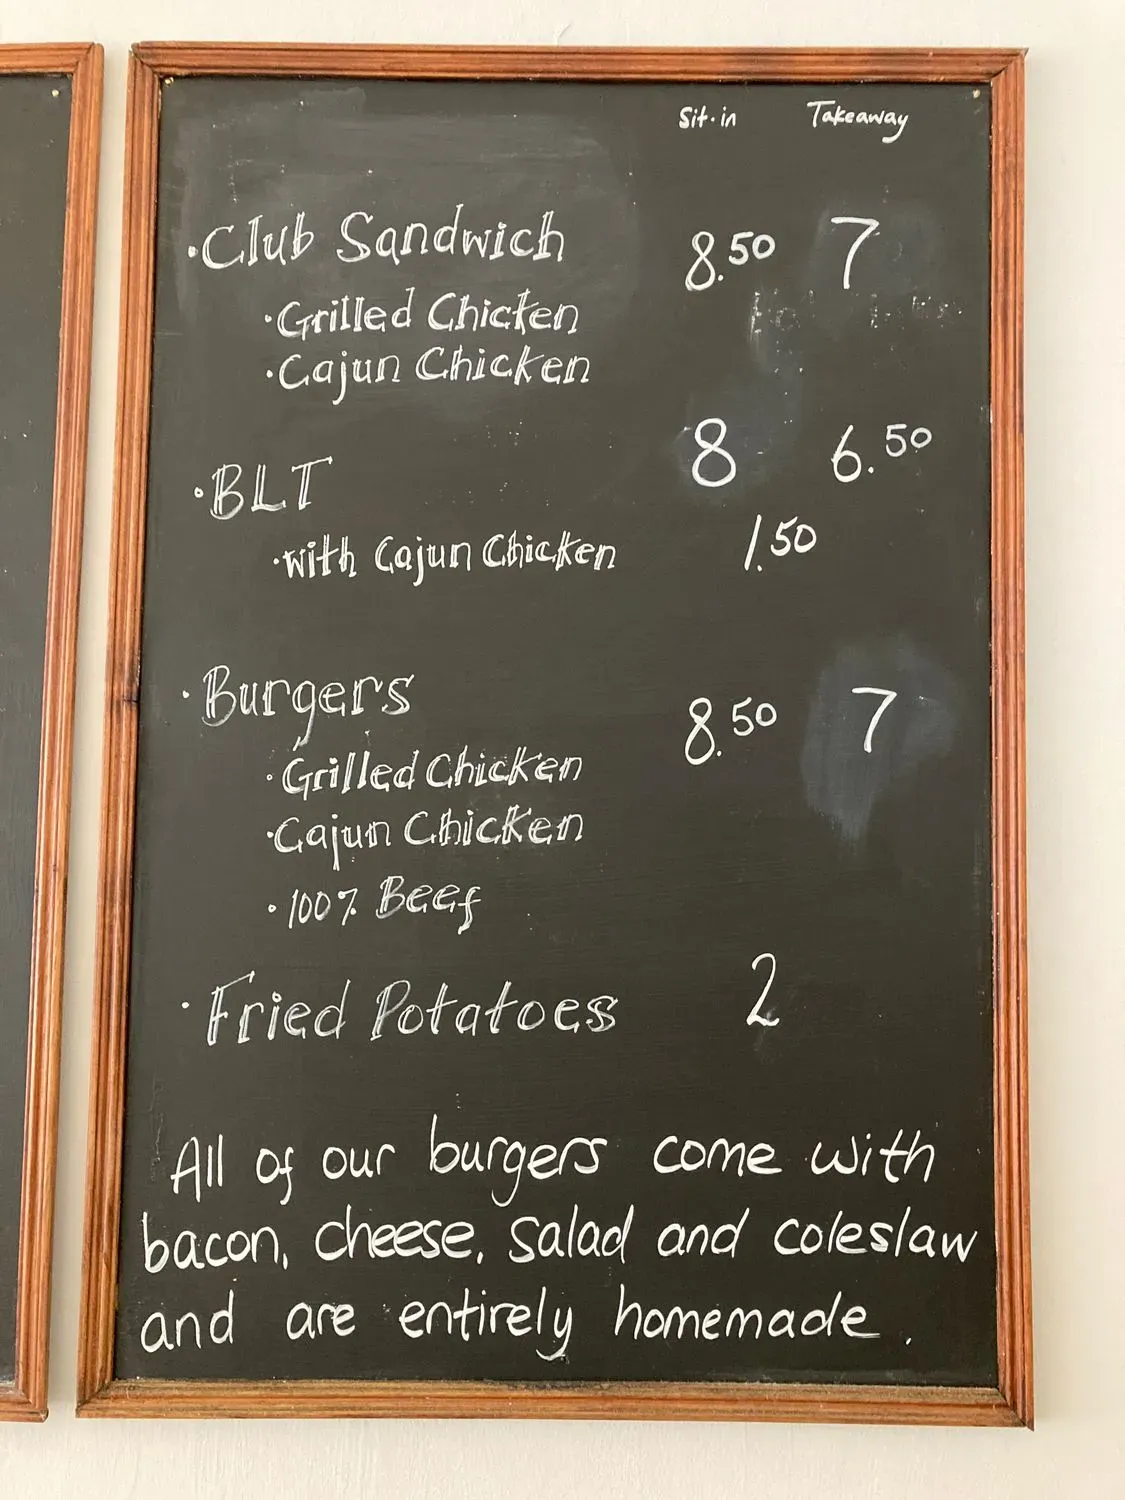 Sit-in Takeaway
·Club Sandwich 8.50 7
·Grilled Chicken
·Cajun Chicken
·BLT 8 6.50
·with Cajun Chicken 1.50
·Burgers 8.50 7
·Grilled Chicken
·Cajun Chicken
·100% Beef
·Fried Potatoes 2
All of our burgers come with
bacon, cheese, salad and coleslaw
and are entirely homemade.